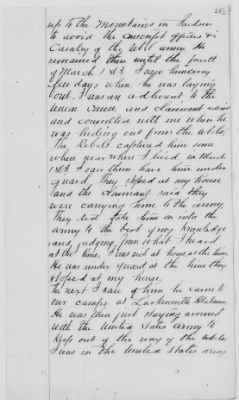 up to the Mountains in Jackson
to avoid the conscript officers &
Cavalry of the rebel army. He
remained there until the fourth
of March 1863. I saw him every
few days when he was laying
out. I was an adherent to the
Union Cause and claimant advised
and counciled with me when he
was hiding out from the rebels.
The Rebels captured him some
where near where I lived, in March
1863. I saw them have him under
guard. They stopped at my house
and the claimant said they
were carrying him to the army.
They did take him on into the
army to the best of my knowledge
and judging from what I heard
at the time, I was sick at home at the time.
He was under guard at the time they
stopped at my house.
The next I saw of him he came to
our camps at Larkinsville Alabama.
He was then just staying around
with the United States Army to
keep out of the way of the rebels.
I was in the United States army